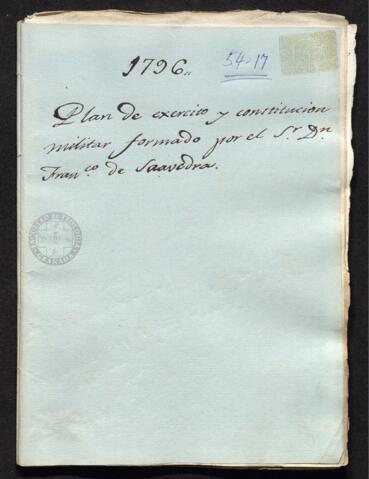 1796.,
54-17
Plan de exercito y constitucion
militar formado por el Sr. Dn
Franco. de Saavedra.